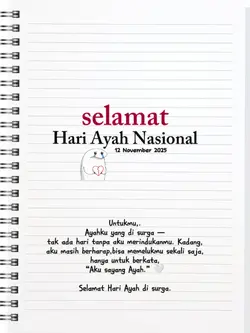 selamat
Hari Ayah Nasional
12 November 2025
Untukmu,.
Ayahku yang di surga —
tak ada hari tanpa aku merindukanmu. Kadang,
aku masih berharap,bisa memelukmu sekali saja,
hanya untuk berkata,
"Aku sayang Ayah."
Selamat Hari Ayah di surga.